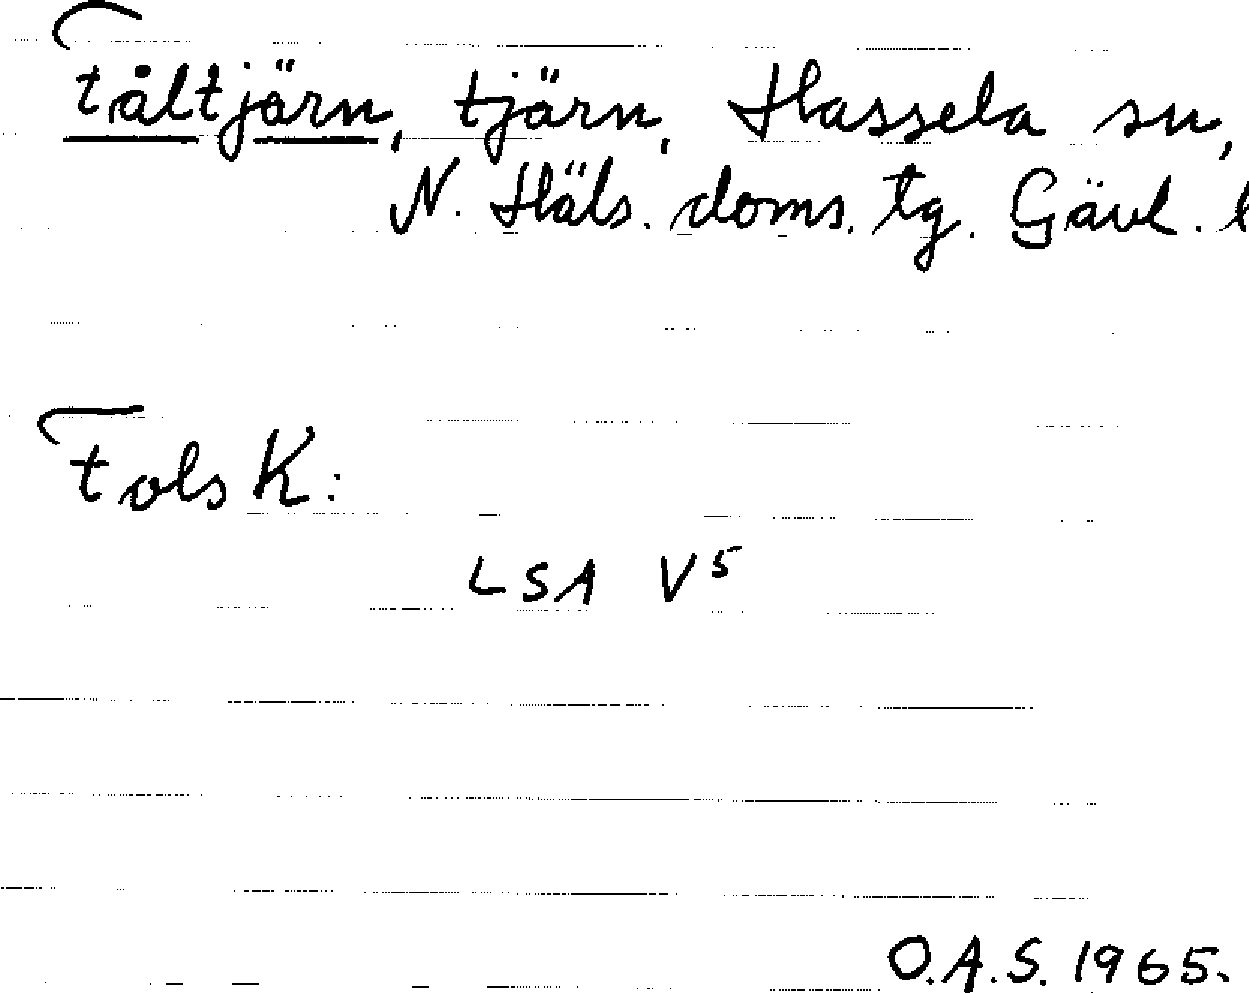 Tåltjärn, tjärn, Hassela sn,
N. Häls. doms. tg. Gävl. l
Tols K:
LSA V5
O.A.S. 1965.